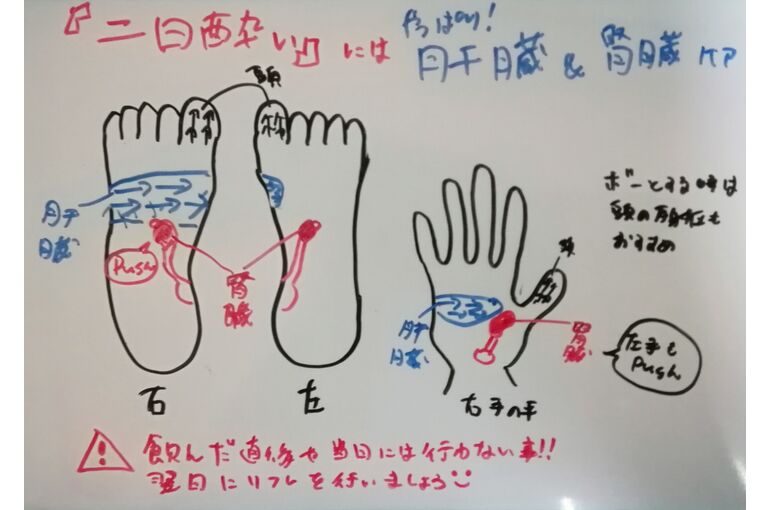 『二日酔い』には
やはり!
肝臓&腎臓ケア
頭
肝
臓
Push
腎
臓
右
左
ボーとする時は
頭の反射区も
おすすめ
頭
肝
臓
腎
臓
左手も
Push
右手の平
飲んだ直後や当日には行わない事!!
翌日にリフレを行いましょう